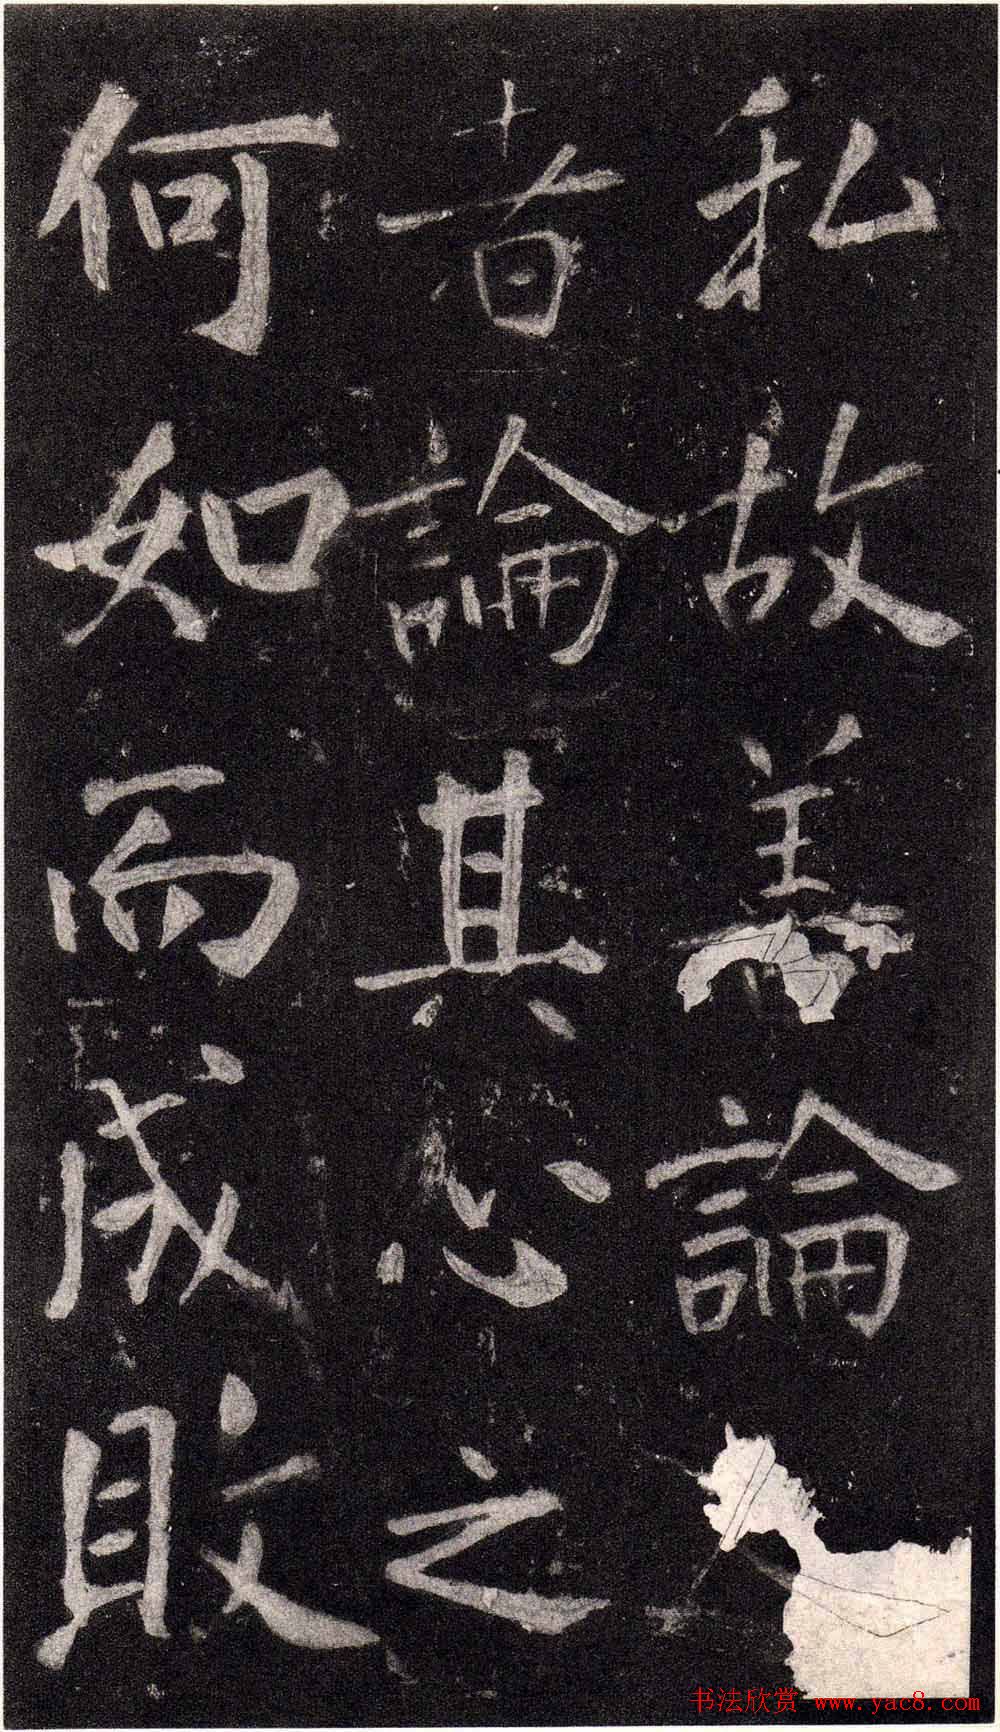 私故善論
者論其心之
何如而成敗
书法欣赏 www.yac8.com